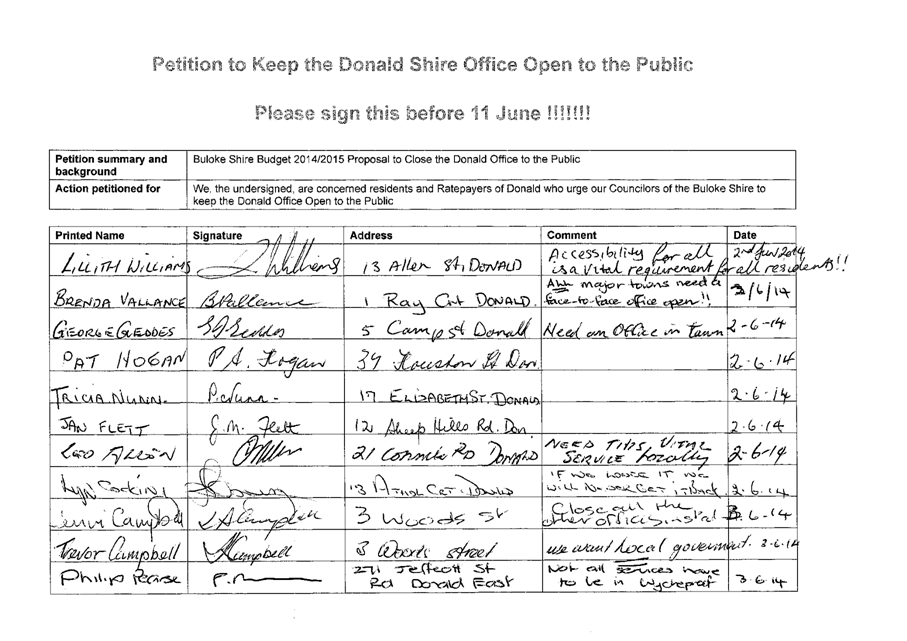 Petition to Keep the Donald Shire Office Open to the Public
Please sign this before 11 June !!!!!!!
Petition summary and background Buloke Shire Budget 2014/2015 Proposal to Close the Donald Office to the Public
Action petitioned for We, the undersigned, are concerned residents and Ratepayers of Donald who urge our Councilors of the Buloke Shire to
keep the Donald Office Open to the Public
Printed Name Signature Address Comment Date
LILLITH WILLIAMS L Williams 13 Allen St, DONALD Accessibility for all 2nd Jun 2014
is a vital requirement for all residents!!
BRENDA VALLANCE B Vallance 1 Ray Crt DONALD. ALL major towns need a 2/6/14
face-to-face office open!!
GEORGE GEDDES G Geddes 5 Camp St Donald Need an Office in Town 2-6-14
PAT HOGAN P.A. Hogan 34 Houston St Don 2.6.14
TRICIA NUNN. P. Nunn. 17 ELIZABETH ST. DONALD 2.6.14
JAN FLETT J.M. Flett 12 Sheep Hills Rd. Don. 2.6.14
ALLEN 21 RD DONALD NEED THIS VITAL 2-6-14
SERVICE Locally
Lyn 13 Donald IF WE LOOSE IT WE
will Never Get it Back 2.6.14
Campbell Campbell 3 Woods St Close all the 3.6-14
other offices
Trevor Campbell Campbell 3 Woods street we want Local goverment. 3-6-14
Philip Pearse P. 271 Jeffcott St Not all services have
Rd Donald East to be in Wycheproof 3.6.14